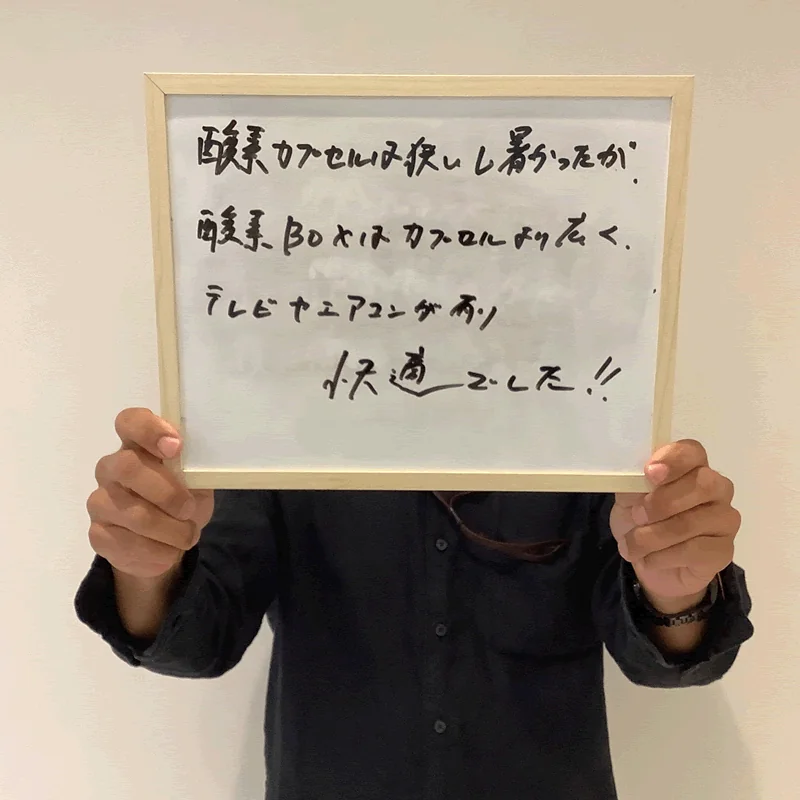 酸素カプセルは狭いし暑かったが、
酸素BOXはカプセルより広く、
テレビやエアコンが有り
快適でした!!